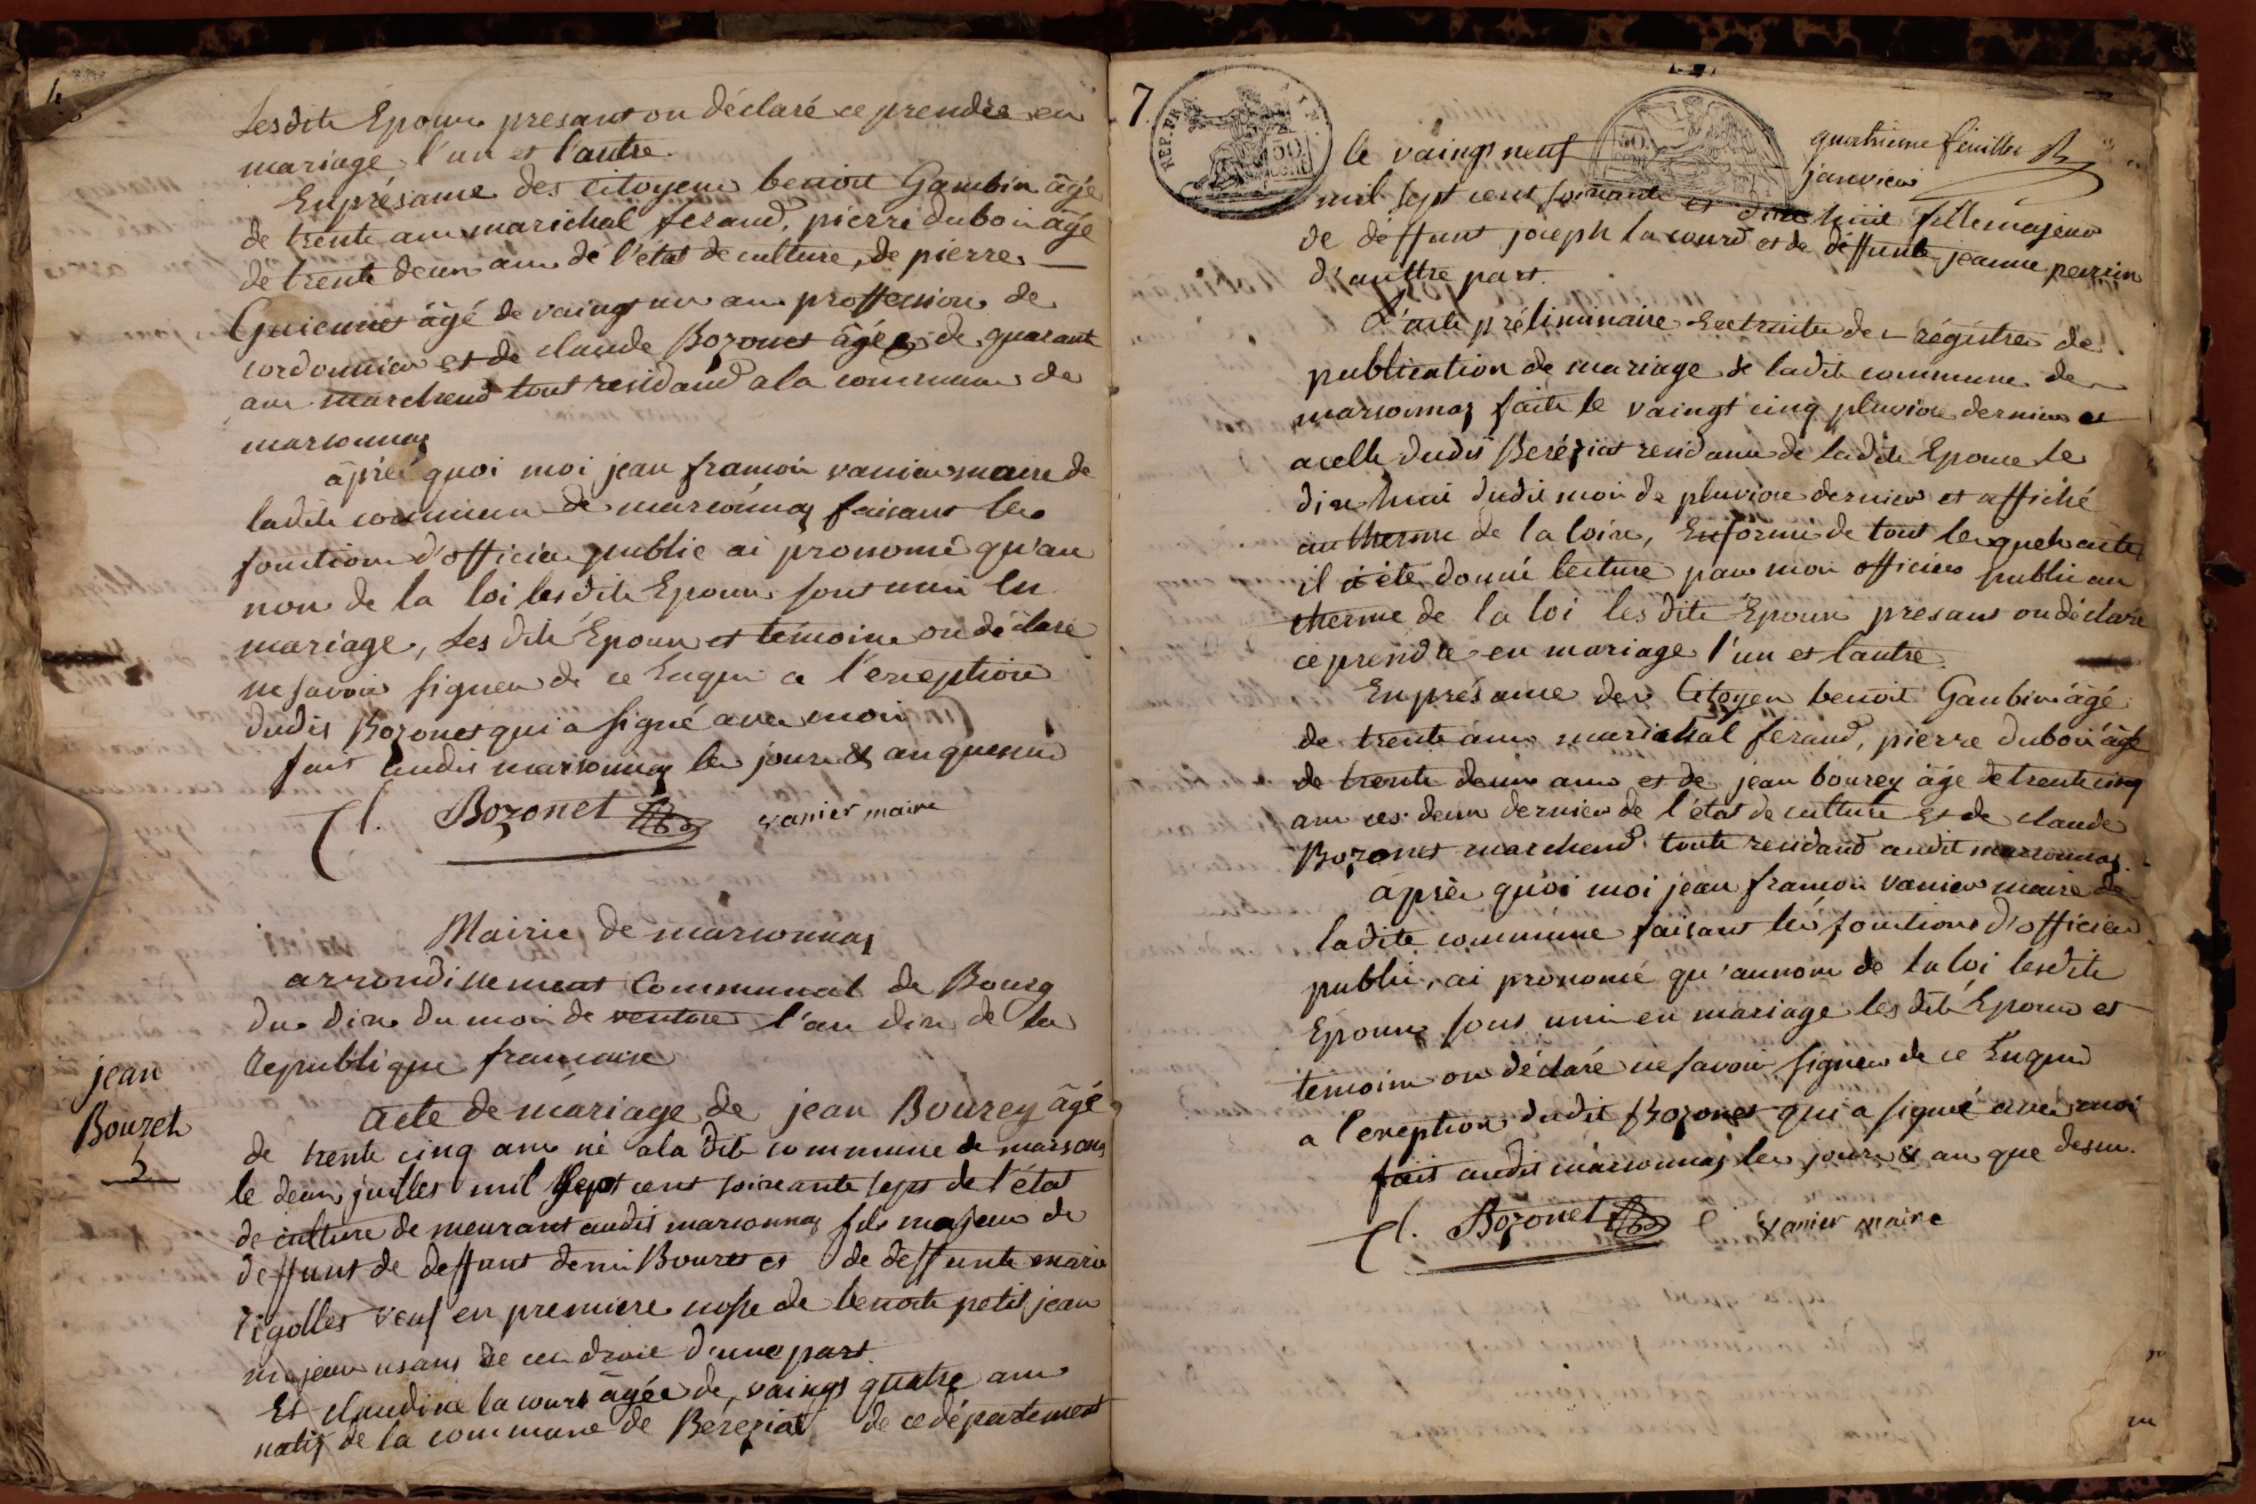 Lesdits Epoux presant on déclaré ce prendre en
mariage l'un et l'autre.
En présance des citoyens benoit Gambin âgé
de trente ans marichal feraud, pierre dubois âgé
de trente deux ans de l'état de culture, de pierre
Guiennet âgé de vaingt un ans proffession de
cordonnier et de claude Bozonet âgée de quarant
ans marchend tout residand a la commune de
marsonnas
âprês quoi moi jean francois vanier maire de
ladite commune de marsonnas faisant les
fonctions d'officier public ai prononcé qu'au
non de la loi lesdits Epoux sont unis en
mariage, Les dits Epoux et témoins on déclaré
ne savoir signer de ce Enquis a l'exception
dudit Bozonet qui a signé avec moi
fait audit marsonnas les jours & an que sus
Cl. Bozonet vanier maire
Mairie de marsonnas
arrondissement Communal de Bourg
du dix du mois de ventose l'an dix de la
republique francaise
jean
Bouret
5
acte de mariage de jean Bourey âgé
de trente cinq ans né a la dite commune de marsonas
le deux juilles mil sept cent soixante sept de l'état
de culture de meurant audit marsonnas fils majeur de
deffunt de deffunt denis Bouret et de deffunte marie
rigolles veuf en premiere nosse de benoite petit jean
majeur usans de ces droit d'une part.
Et claudine la cours âgée de vaingt quatre ans
natif de la commune de Béréziat de ce département
7
REP. FRA
50
50
quatrieme feuillet
le vaingt neuf janvier
mil sept cent soixante et dix huit fille majeur
de deffunt joseph la courd et de deffunte jeanne perrin
d'auttre part.
L'acte préliminaire Extraite des régistres de
publication de mariage de ladite commune de
marsonnas faite le vaingt cinq pluviose dernier et
a celle dudit Béréziat residance de ladite Epouse le
dix huit dudit mois de pluviose dernier et affiché
au therme de la loix, En forme de tout lesquels actes
il a été donné lecture par moi officier public au
therme de la loi lesdits Epoux presant on déclaré
ce prendre en mariage l'un et lautre.
En présance des Citoyen benoit Gambin âgé
de trente ans marichal feraud, pierre dubois âgé
de trente deux ans et de jean bourey âgé de trente cinq
ans ces deux dernier de l'état de culture Et de claude
Bozonet marchend toute residand audit marsonnas.
âprès quoi moi jean francois vanier maire de
ladite commune faisant les fonctions d'officier
public, ai prononcé qu'au nom de la loi lesdits
Epoux sont unis en mariage les dits Epoux et
témoins on déclaré ne savoir signer de ce Enquis
a l'exception dudit Bozonet qui a signé avec moi
fait audit marsonnas les jours & an que dessus.
Cl. Bozonet vanier maire